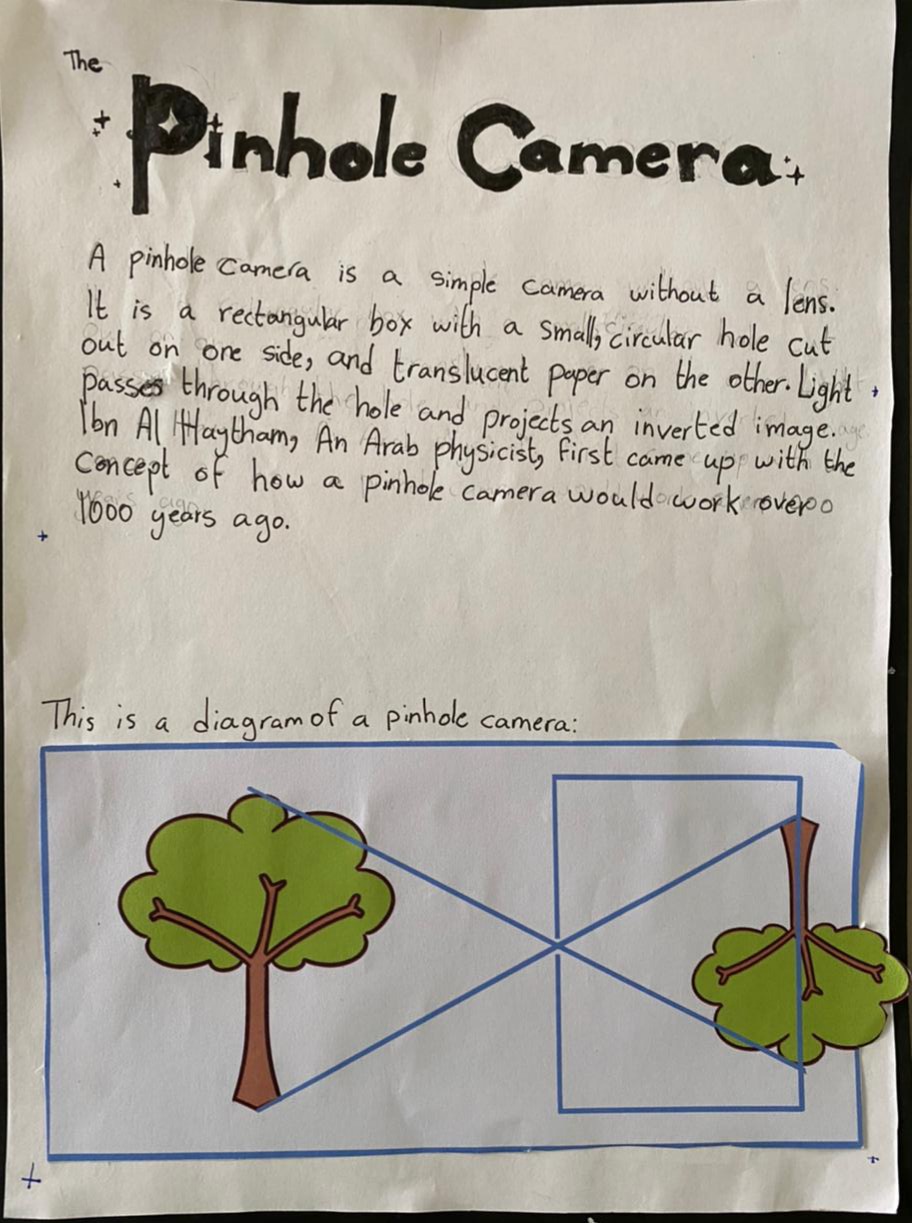 The
Pinhole Camera
A pinhole camera is a simple camera without a lens.
It is a rectangular box with a small, circular hole cut
out on one side, and translucent paper on the other. Light
passes through the hole and projects an inverted image.
Ibn Al Haytham, An Arab physicist, first came up with the
concept of how a pinhole camera would work over
1000 years ago.
This is a diagram of a pinhole camera: